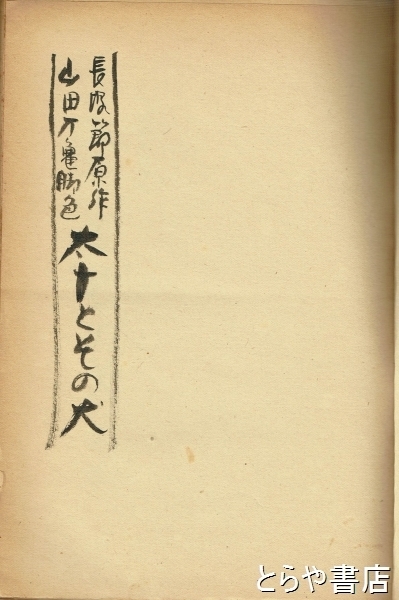 長塚節原作
山田 亀脚色
太十とその犬
とらや書店